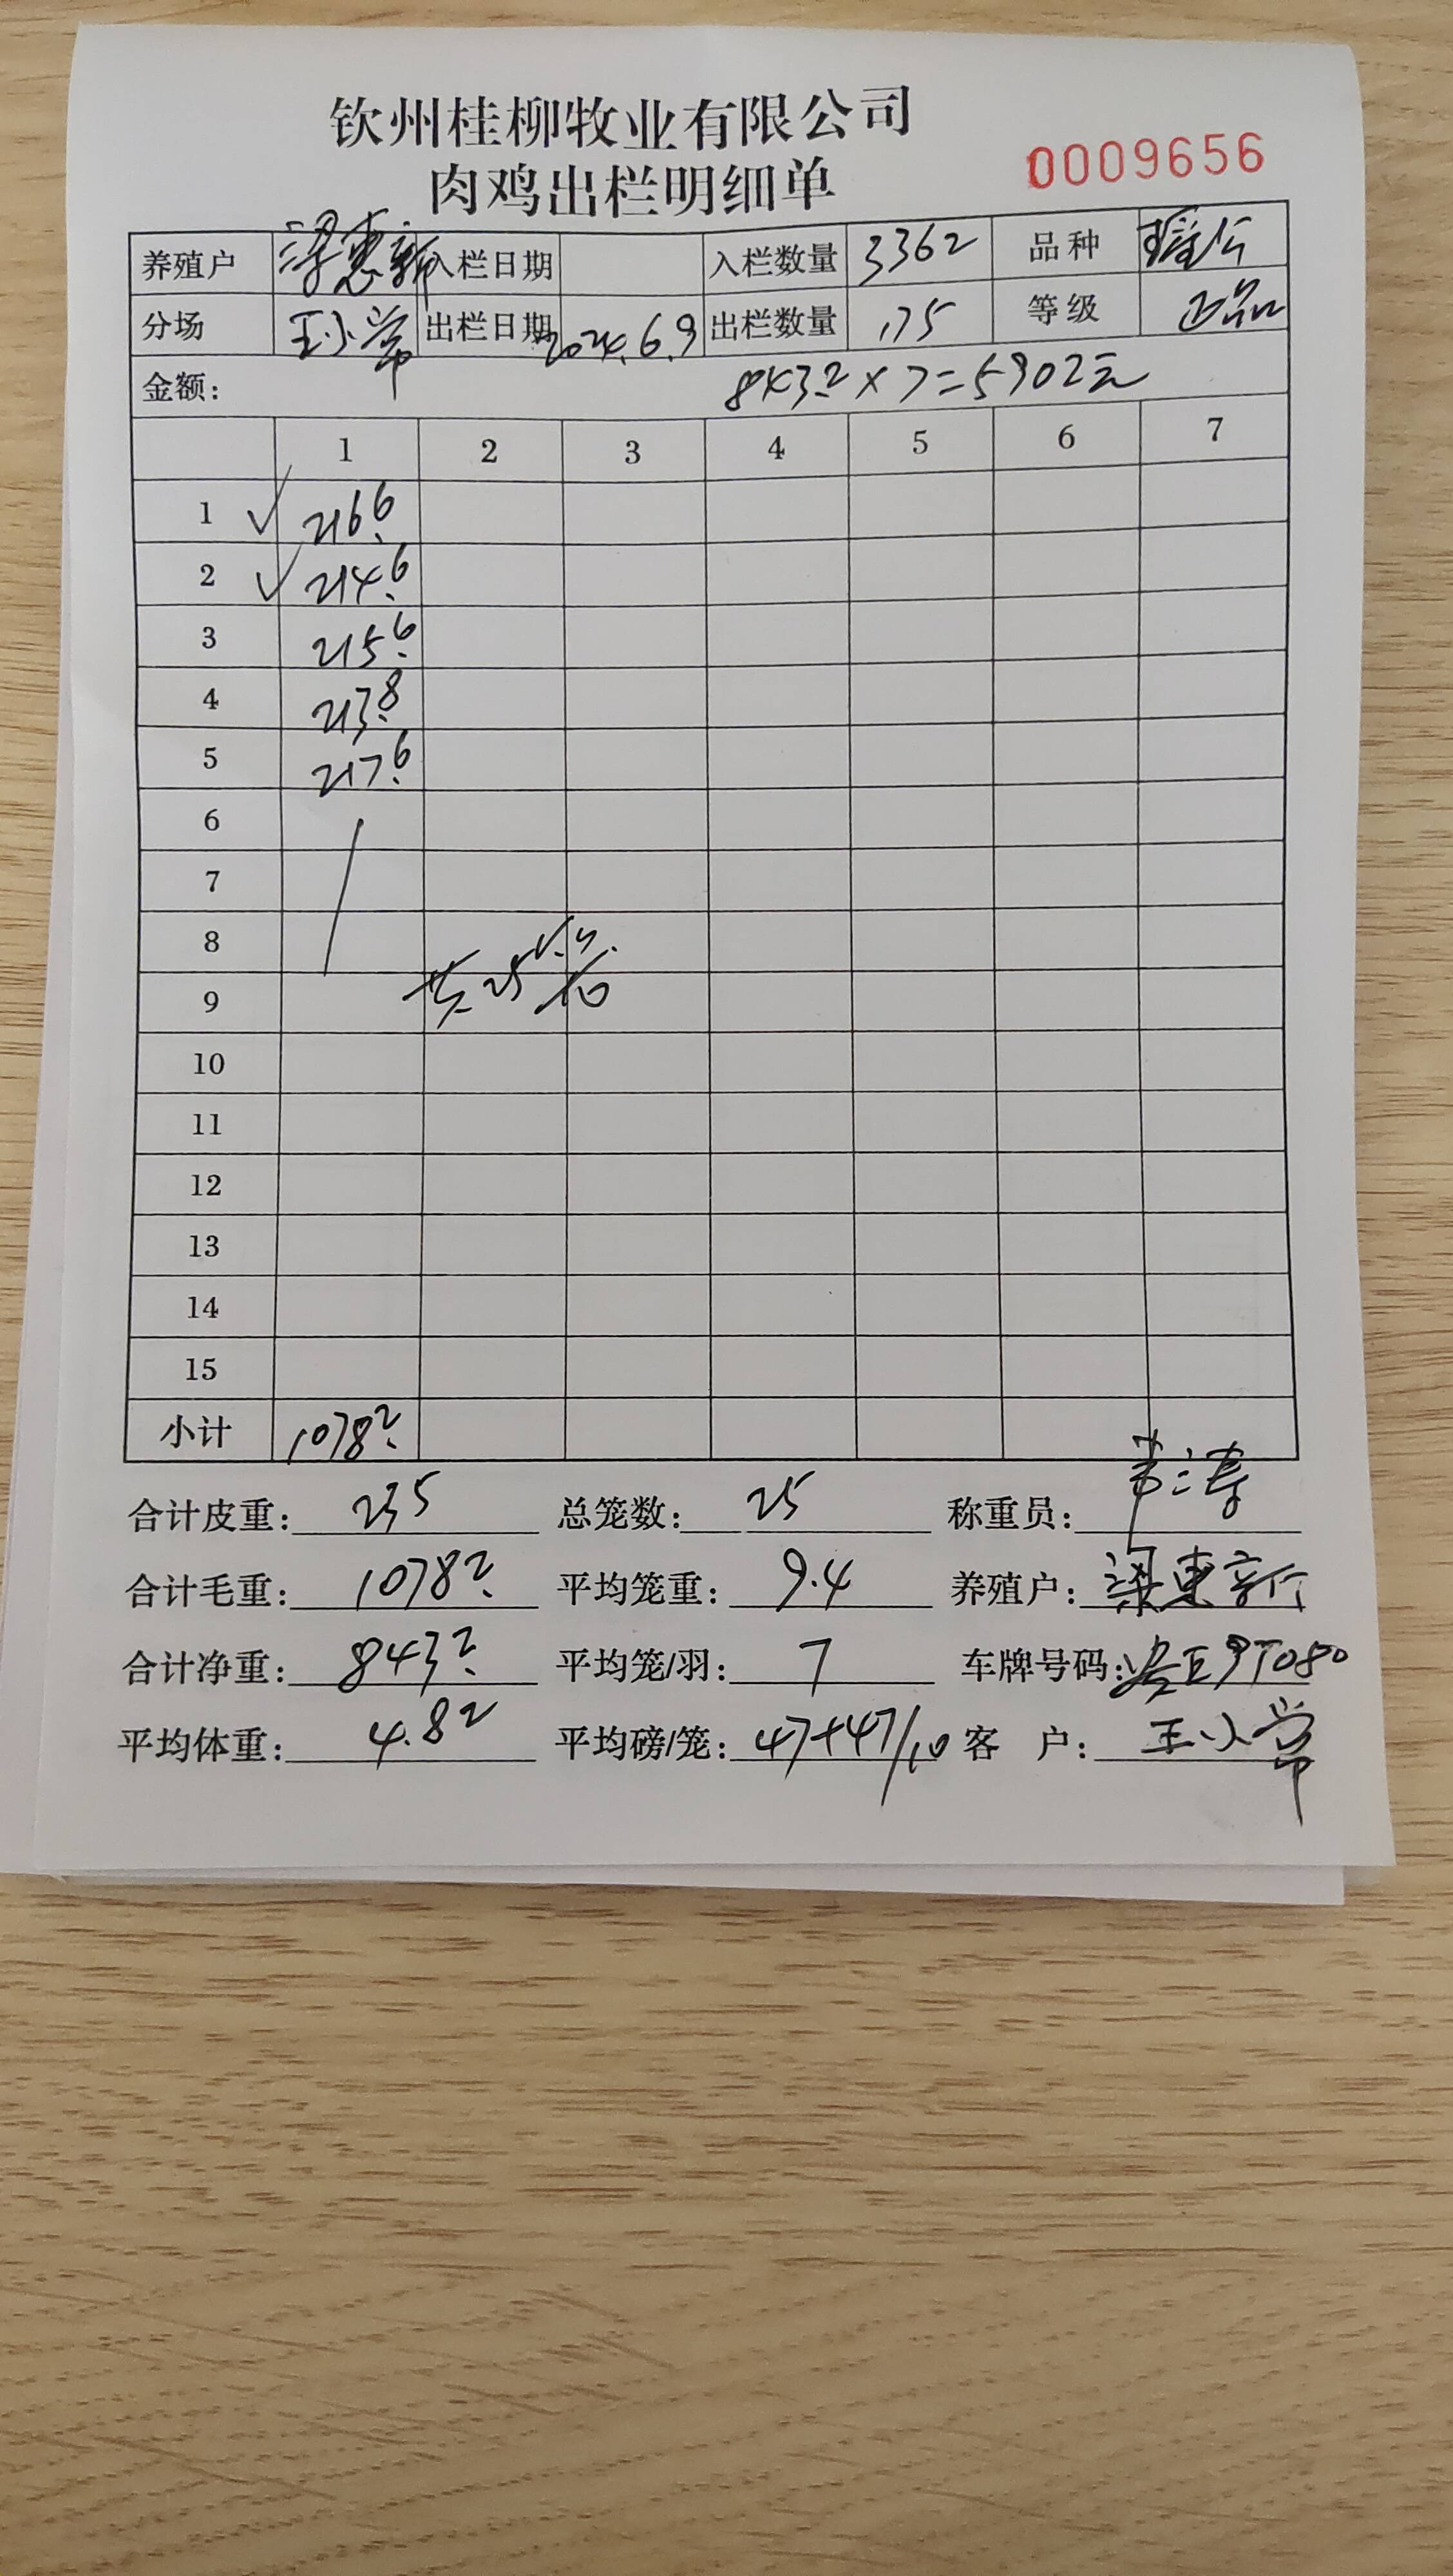 钦州桂柳牧业有限公司
肉鸡出栏明细单
0009656
养殖户 梁惠新 入栏日期 入栏数量 3362 品种 瑶公
分场 王小常 出栏日期 2024.6.9 出栏数量 175 等级 正品
金额: 843.2×7=5902元
1 2 3 4 5 6 7
1 216.6
2 214.6
3 215.6
4 213.8
5 217.6
6
7
8
9 共25笼
10
11
12
13
14
15
小计 1078.2
合计皮重: 235 总笼数: 25 称重员:
合计毛重: 1078.2 平均笼重: 9.4 养殖户: 梁惠新
合计净重: 843.2 平均笼/羽: 7 车牌号码:
平均体重: 4.82 平均磅/笼: 47+47/10 客 户: 王小常